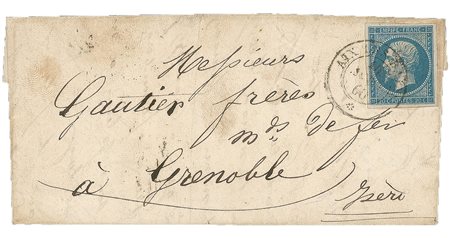 Messieurs
Gautier frères
mds de fer
à Grenoble
Isère
EMPIRE FRANC.
20 C. POSTES 20 C.
AIX